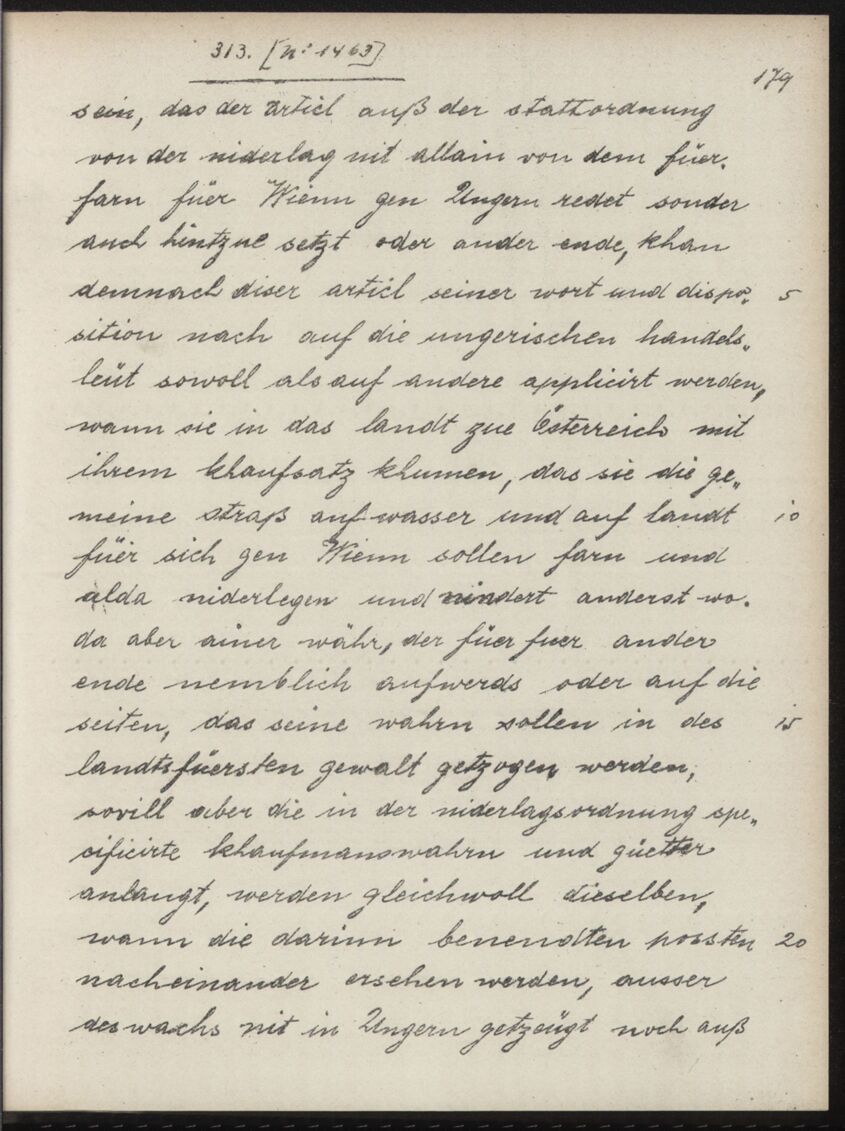 313. [N: 1463]
179
sein, das der articl auß der stattordnung
von der niderlag nit allain von dem füer„
farn füer Wienn gen Ungern redet sonder
auch hintzue setzt oder ander ende, khan
demnach diser articl seiner wort und dispo„ 5
sition nach auf die ungerischen handels„
leüt sowoll als auf andere applicirt werden,
wann sie in das landt zue Österreich mit
ihrem khaufsatz khumen, das sie die ge„
meine straß auf wasser und auf landt 10
füer sich gen Wienn sollen farn und
alda niderlegen und nindert anderst wo.
da aber ainer währ, der füer fuer ander
ende nemblich aufwerds oder auf die
seiten, das seine wahrn sollen in des 15
landtsfüersten gewalt getzogen werden,
sovill aber die in der niderlagsordnung spe„
cificirte khaufmanswahrn und güetter
anlangt, werden gleichwoll dieselben,
wann die darinn benendten possten 20
nacheinander ersehen werden, ausser
des wachs nit in Ungern getzeügt noch auß